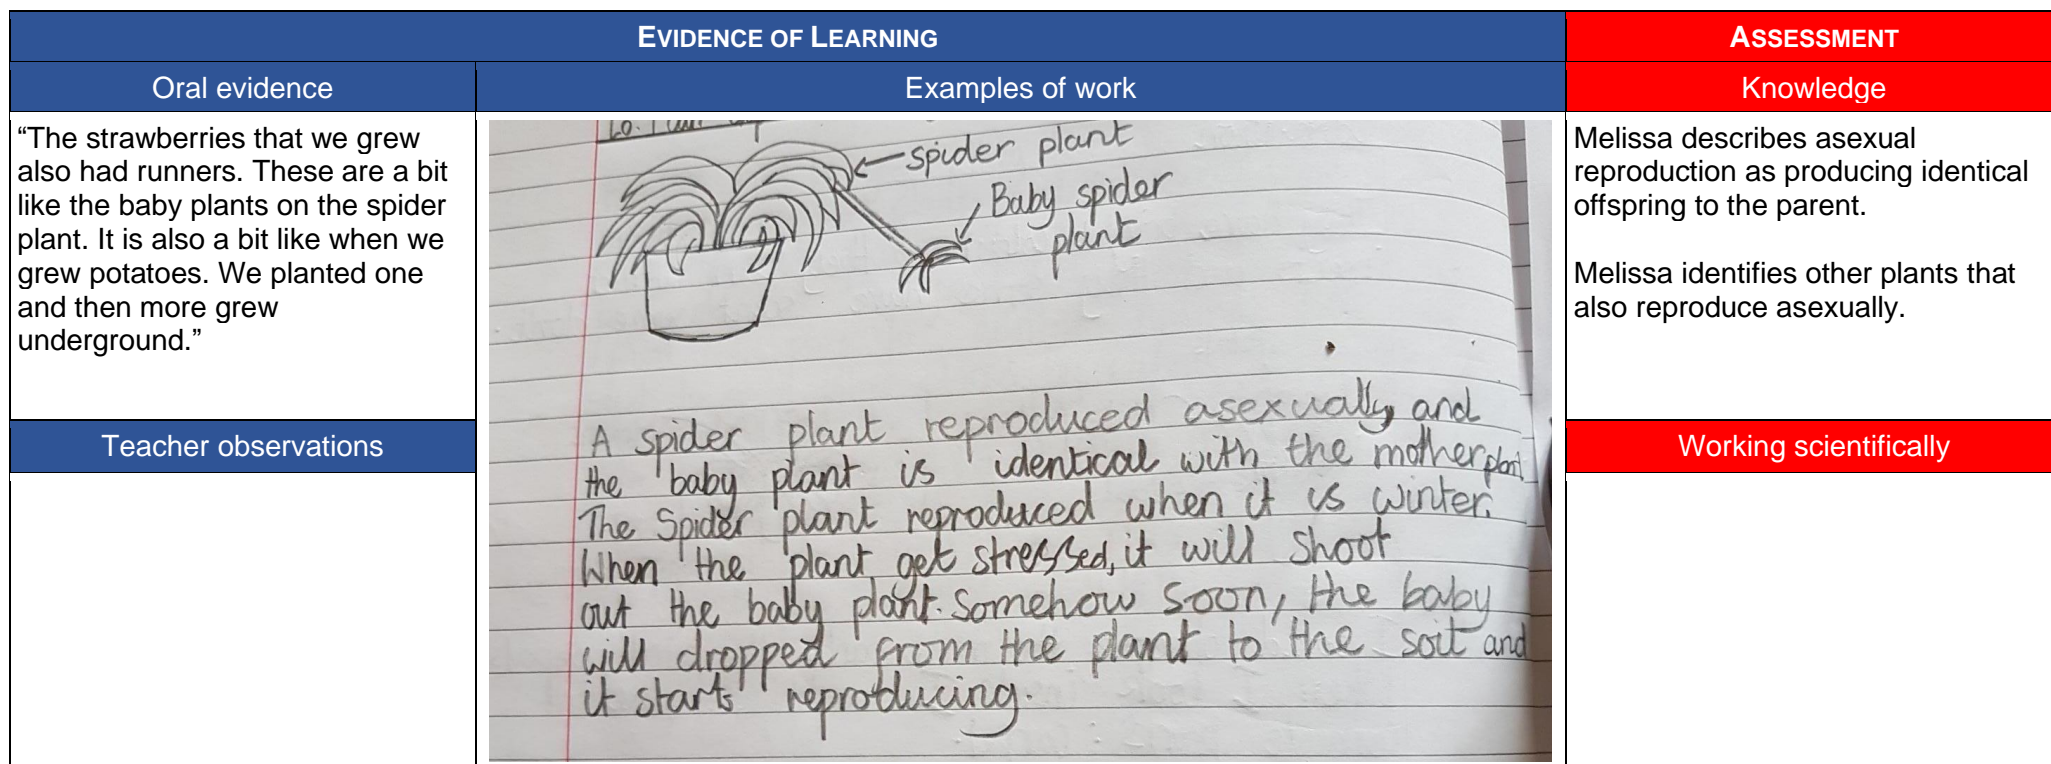 EVIDENCE OF LEARNING
ASSESSMENT
Oral evidence
Examples of work
Knowledge
“The strawberries that we grew
also had runners. These are a bit
like the baby plants on the spider
plant. It is also a bit like when we
grew potatoes. We planted one
and then more grew
underground.”
Teacher observations
spider plant
Baby spider
plant
A spider plant reproduced asexually and
the baby plant is identical with the mother plant
The Spider plant reproduced when it is winter.
When the plant get stressed, it will shoot
out the baby plant. Somehow soon, the baby
will dropped from the plant to the soil and
it starts reproducing.
Melissa describes asexual
reproduction as producing identical
offspring to the parent.
Melissa identifies other plants that
also reproduce asexually.
Working scientifically